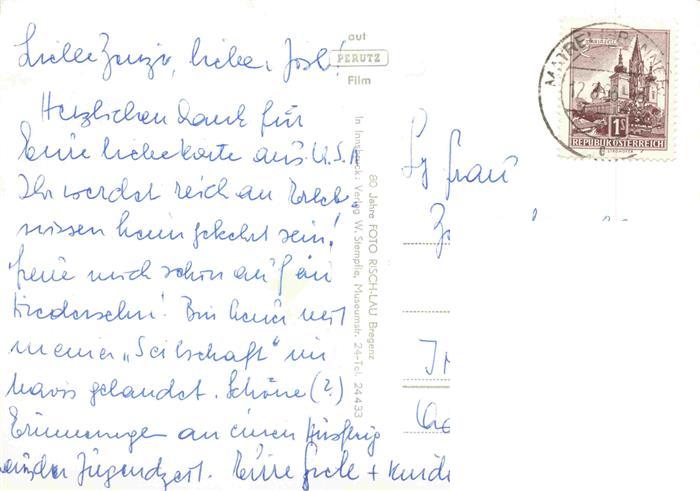 Liebe Zenzi, lieber Josl!
Herzlichen Dank für
Eure liebe Karte aus U.S.A.
Ihr werdet reich an Erleb-
nissen heimgekehrt sein!
freue mich schon auf ein
Wiedersehn! Bin heuer mit
meiner „Seilschaft" in
Navis gelandet. Schöne (?)
Erinnerungen an einen Ausflug
aus der Jugendzeit. Eure Gretl +
auf
PERUTZ
Film
80 Jahre FOTO RISCH-LAU Bregenz
In Innsbruck: Verlag W. Stempfle, Museumstr. 24-Tel. 24433
MATREI BRENNER
12.8
1S
REPUBLIK ÖSTERREICH
Frau